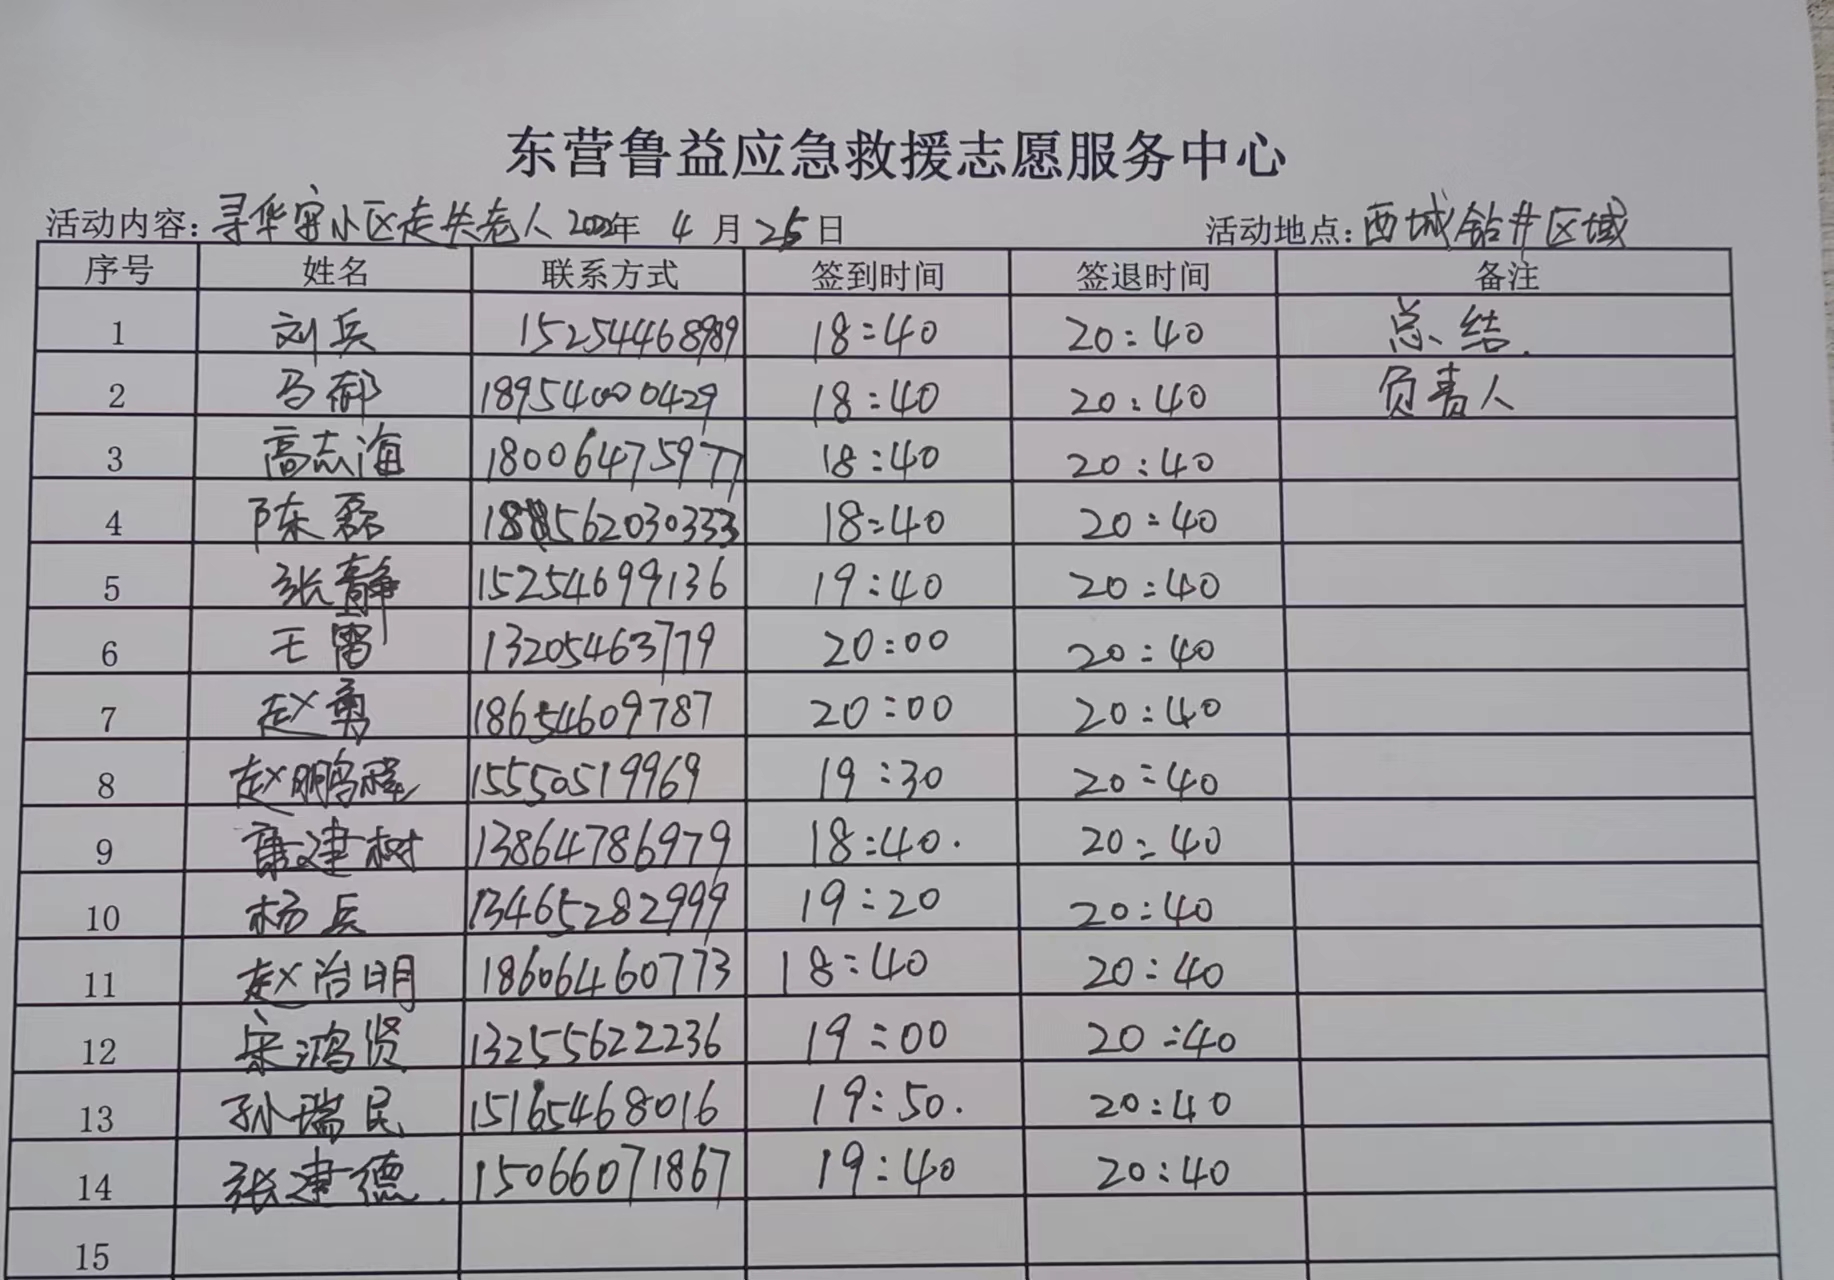 东营鲁益应急救援志愿服务中心
活动内容：寻华宇小区走失老人 2022年 4 月 25 日 活动地点：西城钻井区域
序号 姓名 联系方式 签到时间 签退时间 备注
1 刘兵 15254468989 18:40 20:40 总结.
2 马郁 18954000429 18:40 20:40 负责人
3 高志海 18006475977 18:40 20:40
4 陈磊 18:40 20:40
5 张静 15254699136 19:40 20:40
6 王雷 13205463779 20:00 20:40
7 赵勇 18654609787 20:00 20:40
8 赵鹏程 15550519969 19:30 20:40
9 唐建树 13864786979 18:40. 20:40
10 杨兵 13465282999 19:20 20:40
11 赵治明 18606460773 18:40 20:40
12 宋鸿贤 13255622236 19:00 20:40
13 孙瑞民 15165468016 19:50. 20:40
14 张建德. 15066071867 19:40 20:40
15